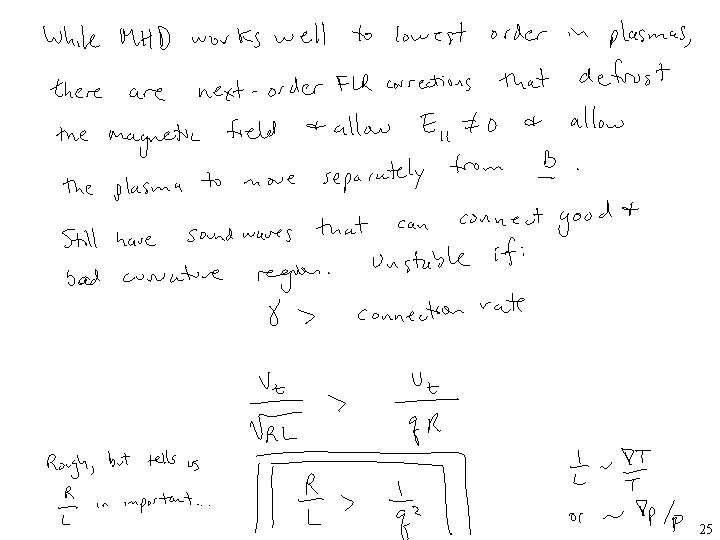 While MHD works well to lowest order in plasmas,
there are next-order FLR corrections that defrost
the magnetic field & allow E∥ ≠ 0 & allow
the plasma to move separately from B.
Still have sound waves that can connect good &
bad curvature region. Unstable if:
γ > connection rate
V_t / √RL > v_t / qR
Rough, but tells us
R/L in important...
R/L > 1/q²
1/L ~ ∇T/T
or ~ ∇p/p
25